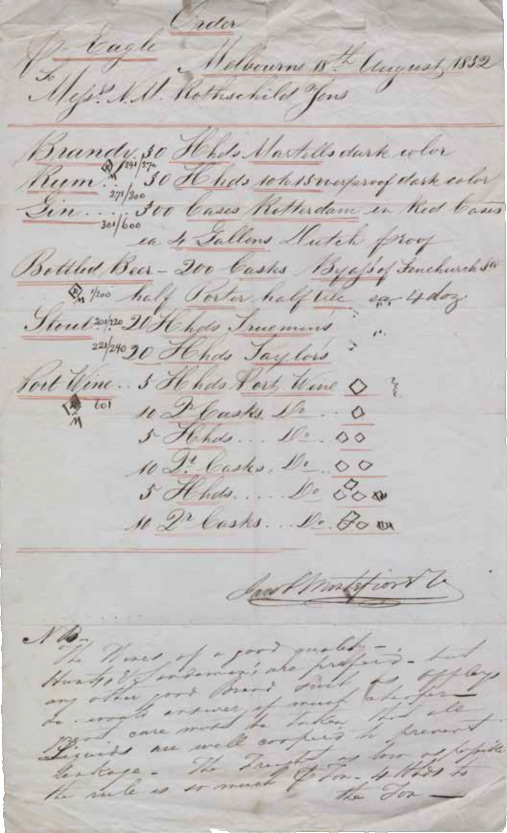 Order
Pr Eagle Melbourne 18th August, 1852
To
Messrs N. M. Rothschild Sons
Brandy. 30 Hhds Martells dark color
241/270
Rum .. 30 Hhds 10 to 15 overproof dark color
271/300
Gin .... 300 Cases Rotterdam in Red Cases
301/600
ea 4 Gallons Dutch proof
Bottled Beer - 200 Casks Byass of Fenchurch St
1/200 half Porter half Ale ea 4 doz
Stout 201/220 20 Hhds Truemans "
221/240 20 Hhds Taylors "
Port Wine .. 5 Hhds Port Wine
M 601
10 Qr Casks Do ..
5 Hhds ... Do ..
10 Qr Casks. Do ..
5 Hhds..... Do ..
10 Qr Casks ... Do ..
NB -
The Wines of a good quality -
Hunts & Sandeman's are prefered - but
any other good Brand such as Offleys
do would answer if much cheaper -
great care must be taken that all
Liquids are well coopered to prevent
leakage - The Freight as low as possible
the rule is so much Pr Ton - 4 Hhds to
the Ton -